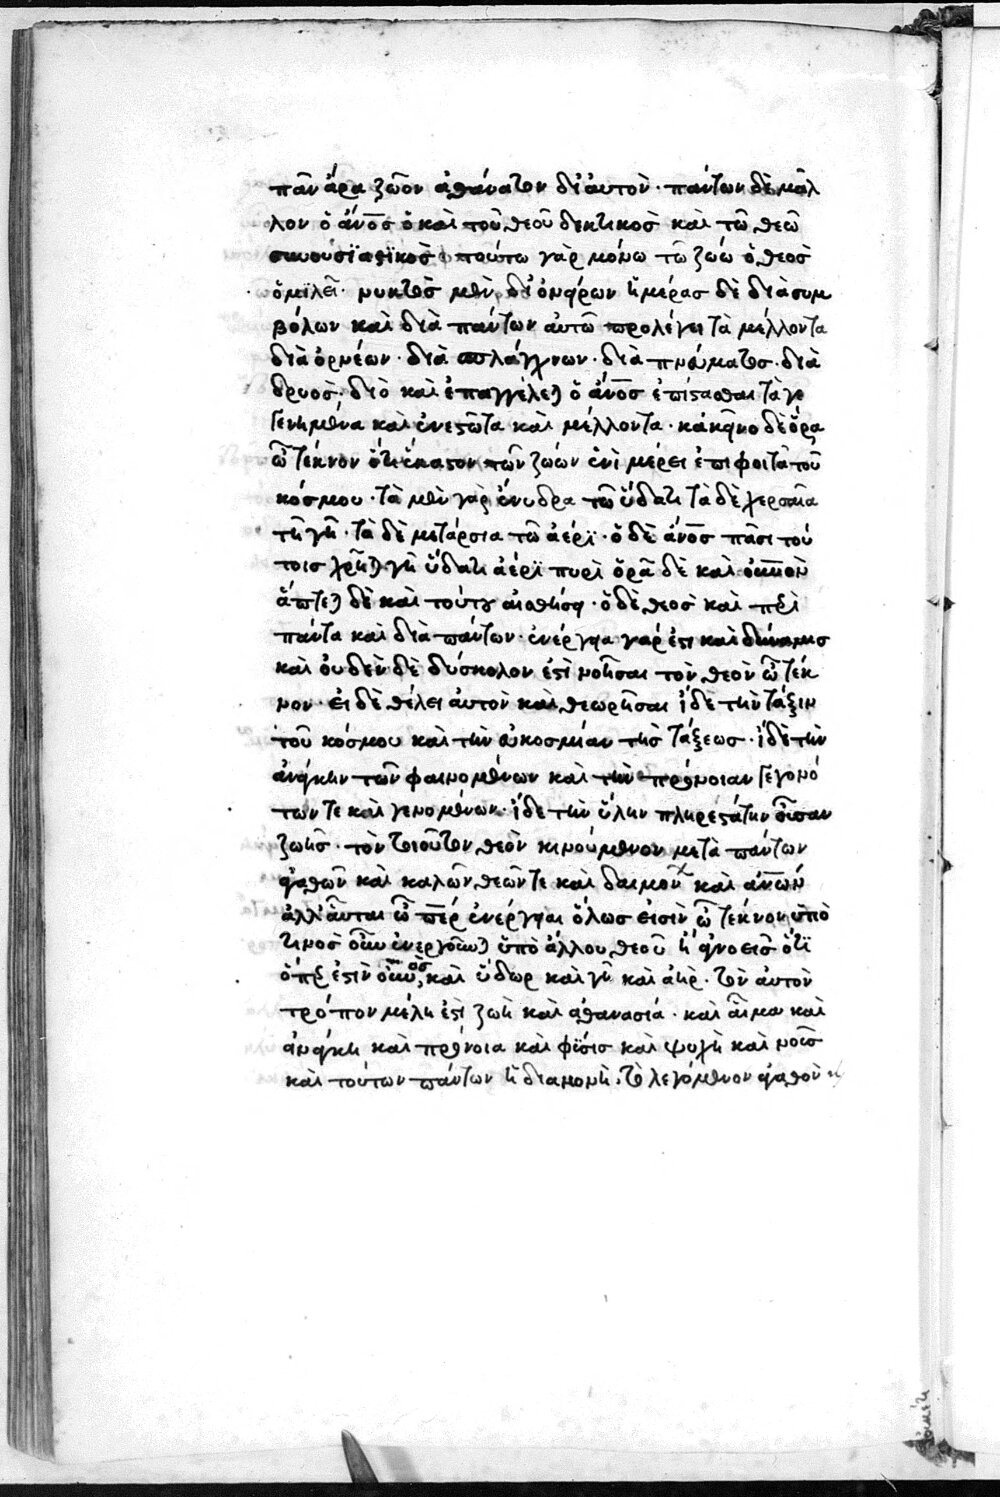 πᾶν ἄρα ζῶον ἀθάνατον δι' αυτὸν · πάντων δὲ μᾶλ
λον ὁ ἄνο̅ς ὁ καὶ τοῦ θεοῦ δεκτικὸς καὶ τῶ θεῶ
συνουσϊαστϊκός τούτω γὰρ μόνω τῶ ζώω ὁ θεὸς
ὁμιλεῖ · νυκτὸς μὲν δι' ὀνείρων ἡμέρας δὲ διὰ συμ
βόλων καὶ διὰ πάντων αὐτῶ προλέγει τὰ μέλλοντα
διὰ ὀρνέων · διὰ σπλάγχνων · διὰ πνεύματος · διὰ
δρυὸς · διὸ καὶ ἐπαγγέλεται ὁ ἄνο̅ς ἐπίστασθαι τὰ γε
γενημένα καὶ ἐνεστῶτα καὶ μέλλοντα · κἀκεῖνο δὲ ὅρα
ὦ τέκνον ὅτι ἕκαστον τῶν ζώων ἑνὶ μέρει ἐπιφοιτᾶ τοῦ
κόσμου · τὰ μὲν γὰρ ἔνυδρα τῶ ὕδατι τὰ δὲ χερσαῖα
τῆ γῆ · τὰ δὲ μετάρσια τῶ ἀέρϊ · ὁ δὲ ἄνο̅ς πᾶσι τού
τοις χρῆται γῆ ὕδατι ἀέρϊ πυρὶ ὁρᾶ δὲ καὶ οὐνὸν
ἅπτεται δὲ καὶ τούτου αἰσθήσει · ὁ δὲ θεὸς καὶ περὶ
πάντα καὶ διὰ πάντων · ἐνέργεια γάρ ἐστι καὶ δύναμις
καὶ οὐδὲν δὲ δύσκολον ἐστὶ νοῆσαι τὸν θεὸν ὦ τέκ
νον · εἰ δὲ θέλει αὐτὸν καὶ θεωρῆσαι ἰδὲ τὴν τάξιν
τοῦ κόσμου καὶ τὴν εὐκοσμίαν τῆς τάξεως · ἰδὲ τὴν
ἀνάγκην τῶν φαινομένων καὶ τὴν πρόνοιαν γεγονό
των τε καὶ γενομένων · ἰδὲ τὴν ὕλην πληρεστάτην οὖσαν
ζωῆς · τὸν τοιοῦτον θεὸν κινούμενον μετὰ πάντων
ἀγαθῶν καὶ καλῶν θεῶν τε καὶ δαιμόνων καὶ ἀν̅ων
ἀλλ' αὗται ὦ πε̅ρ ἐνέργειαι ὅλως εἰσὶν ὦ τέκνον ὑπὸ
τινος οὖν ἐνεργοῦνται ὑπὸ ἄλλου θεοῦ ἢ ἀγνοεῖς ὅτϊ
ὅπερ ἐστὶν οὐνὸς καὶ ὕδωρ καὶ γῆ καὶ ἀὴρ · τὸν αὐτὸν
τρόπον μέλη ἐστὶ ζωὴ καὶ ἀθανασία · καὶ αἷμα καὶ
ἀνάγκη καὶ πρόνοια καὶ φύσις καὶ ψυχὴ καὶ νοῦς
καὶ τούτων πάντων ἡ διαμονὴ · τὸ λεγόμενον ἀγαθὸν